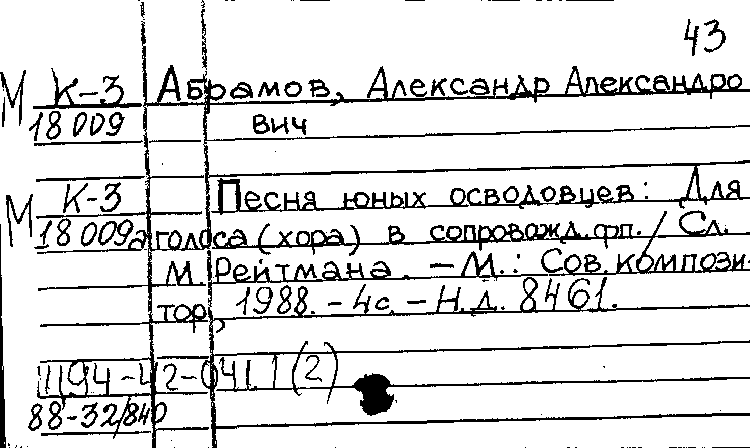 43
М К-3 Абрамов, Александр Александро
18 009 вич
М К-3 Песня юных осводовцев: Для
18 009а голоса (хора) в сопровожд. фп. / Сл.
М. Рейтмана. – М.: Сов. компози-
тор, 1988. – 4с. – Н.д. 8461.
Ш94-42-041.1(2)
88-32/840